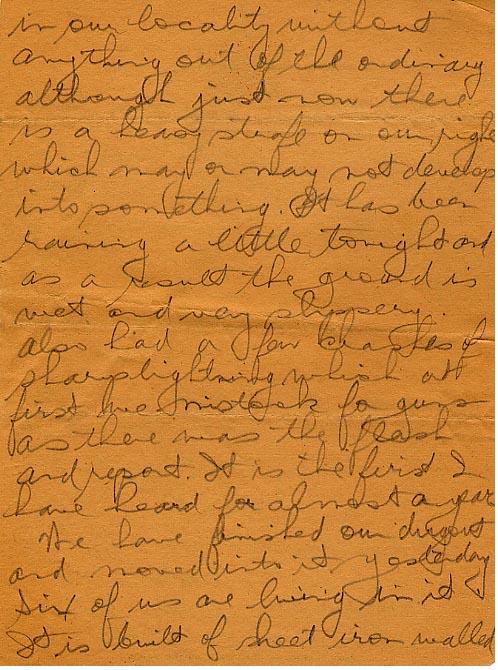 in our locality without
anything out of the ordinary
although just now there
is a heavy strafe on our right
which may or may not develop
into something. It has been
raining a little tonight and
as a result the ground is
wet and very slippery.
also had a few crashes of
sharp lightning which at
first we mistook for guns
as there was the flash
and report. It is the first I
have heard for almost a year
We have finished our dugout
and moved into it yesterday
Six of us are living in it
It is built of sheet iron walled